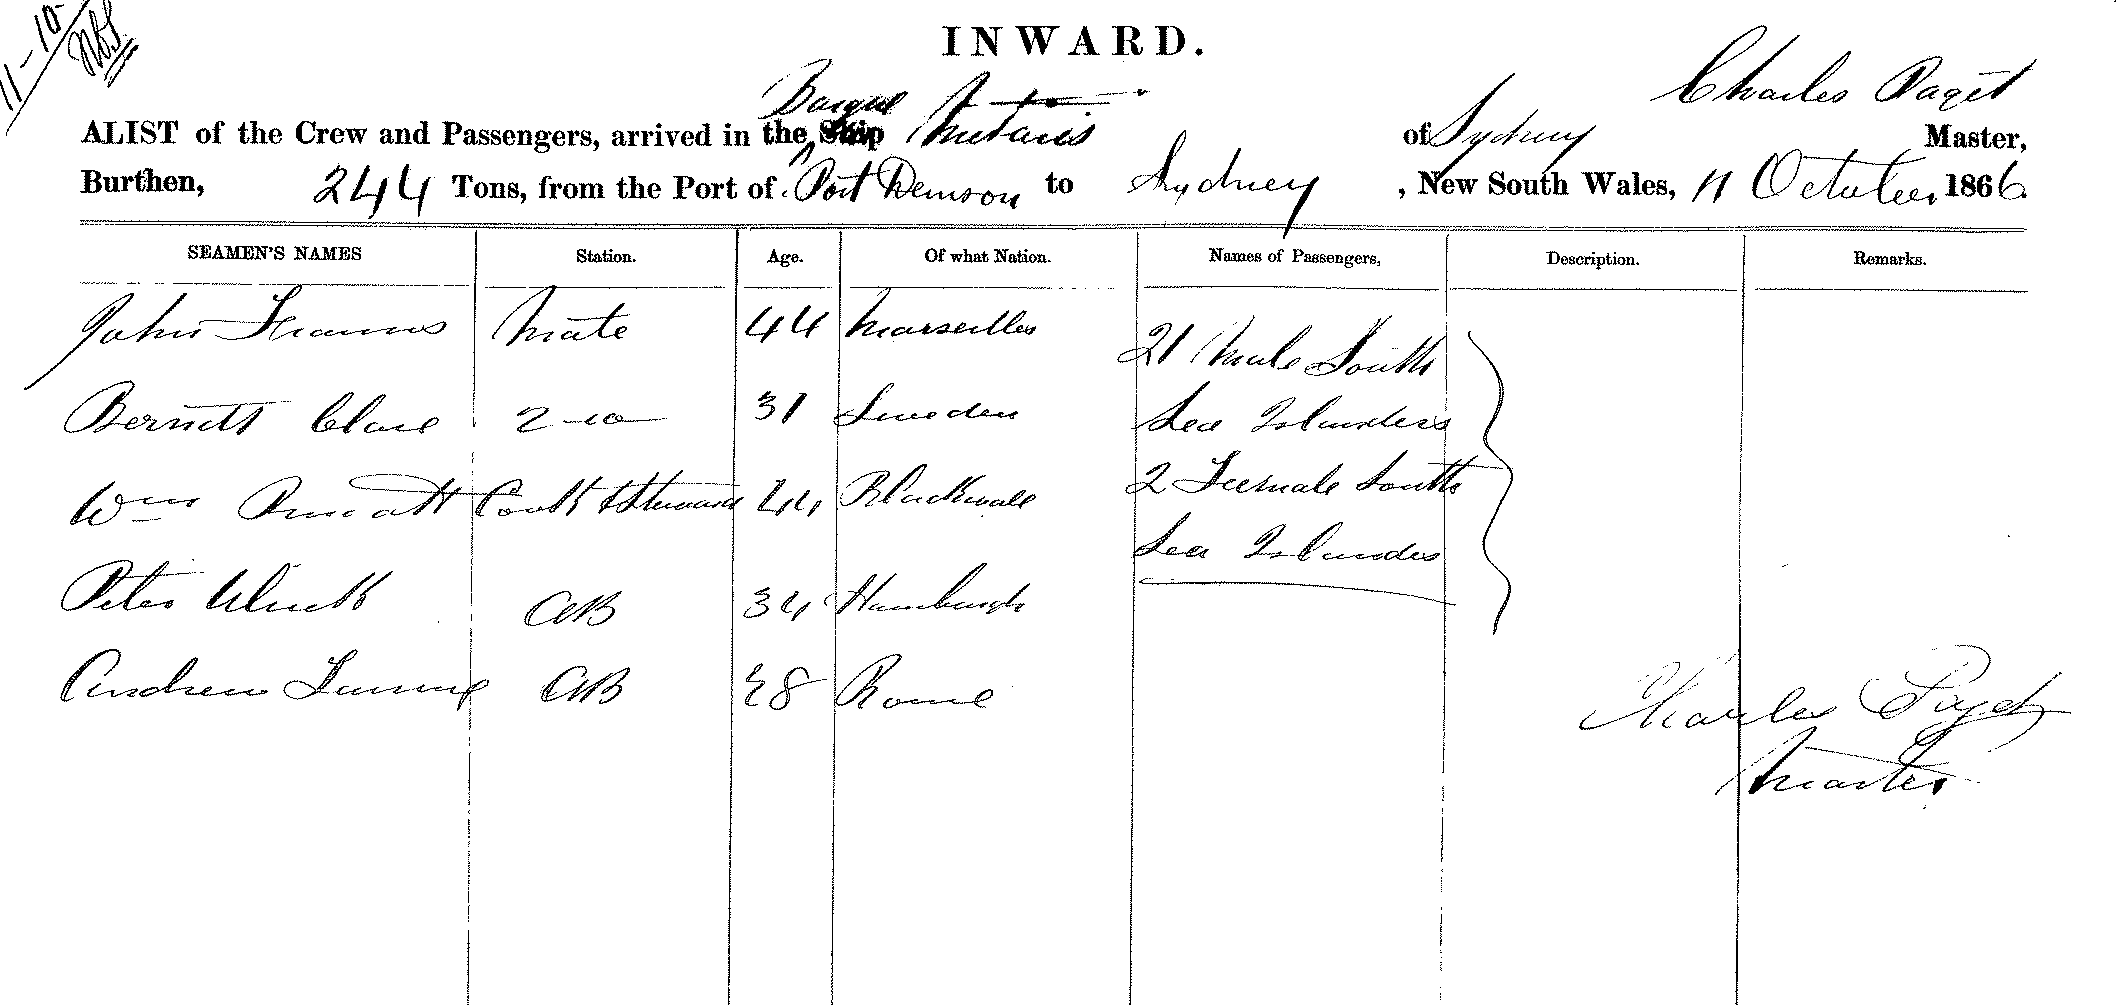 11-10
INWARD.
Charles Paget
Barque
ALIST of the Crew and Passengers, arrived in the Ship Metaris of Sydney Master,
Burthen, 244 Tons, from the Port of Port Denison to Sydney, New South Wales, 11 October 1866.
SEAMEN'S NAMES Station. Age. Of what Nation. Names of Passengers, Description. Remarks.
John Mate 44 Marseilles 21 Male South
2 do 31 Sweden Sea Islanders
Wm Cook & Steward 44 Blackwall 2 Feemale South
Sea Islanders
Peter AB 34 Hamburgh
Andrew AB 28 Rome
Charles Paget
Master